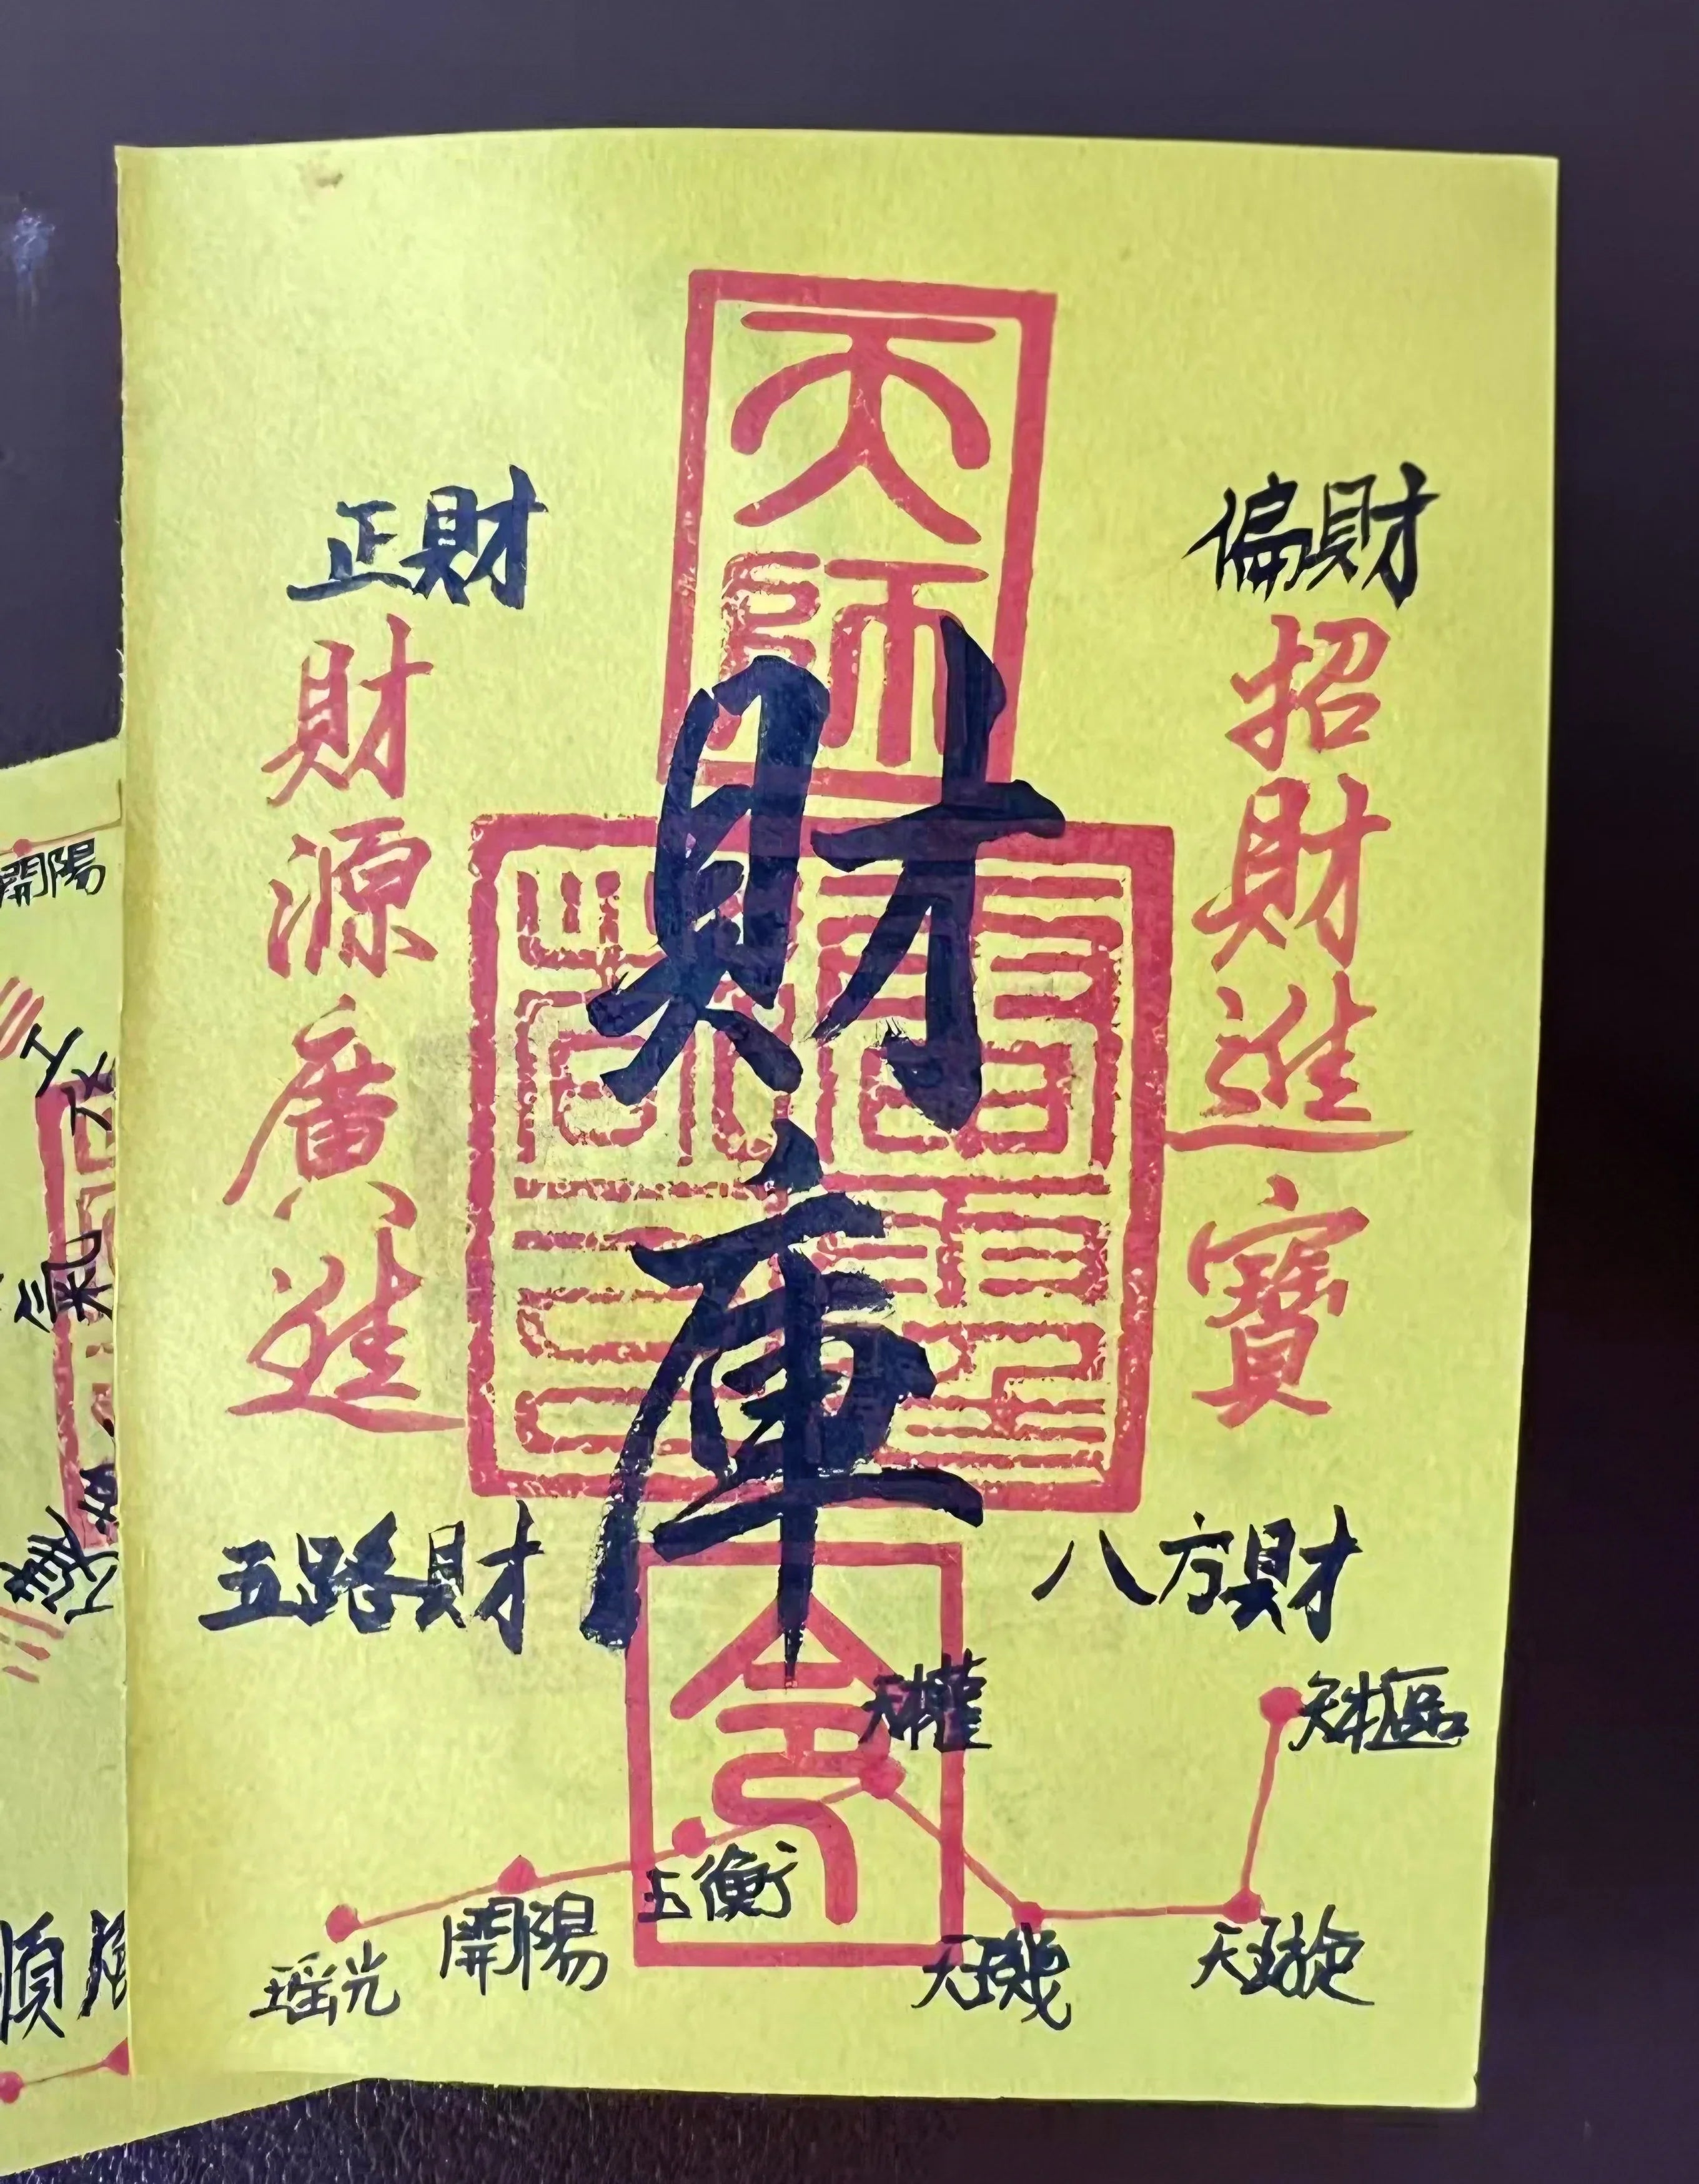 天師
正財
偏財
財源廣進
招財進寶
財庫
五路財
八方財
令
天權
天樞
玉衡
開陽
瑤光
天璣
天璇
開陽
氣
順